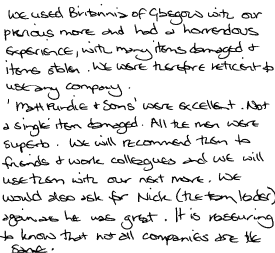 We used Britannia of Glasgow with our
previous move and had a horrendous
experience, with many items damaged &
items stolen. We were therefore reticent to
use any company.
'Matt Purdie & Sons' were excellent. Not
a single item damaged. All the men were
superb. We will recommend them to
friends & work colleagues and we will
use them with our next move. We
would also ask for Nick (the team leader)
again as he was great. It is reassuring
to know that not all companies are the
same.